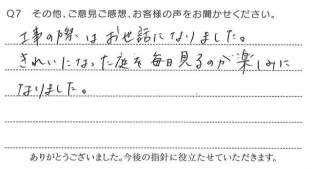 Q7 その他、ご意見ご感想、お客様の声をお聞かせください。
工事の際はお世話になりました。
きれいになった庭を毎日見るのが楽しみに
なりました。
ありがとうございました。今後の指針に役立たせていただきます。